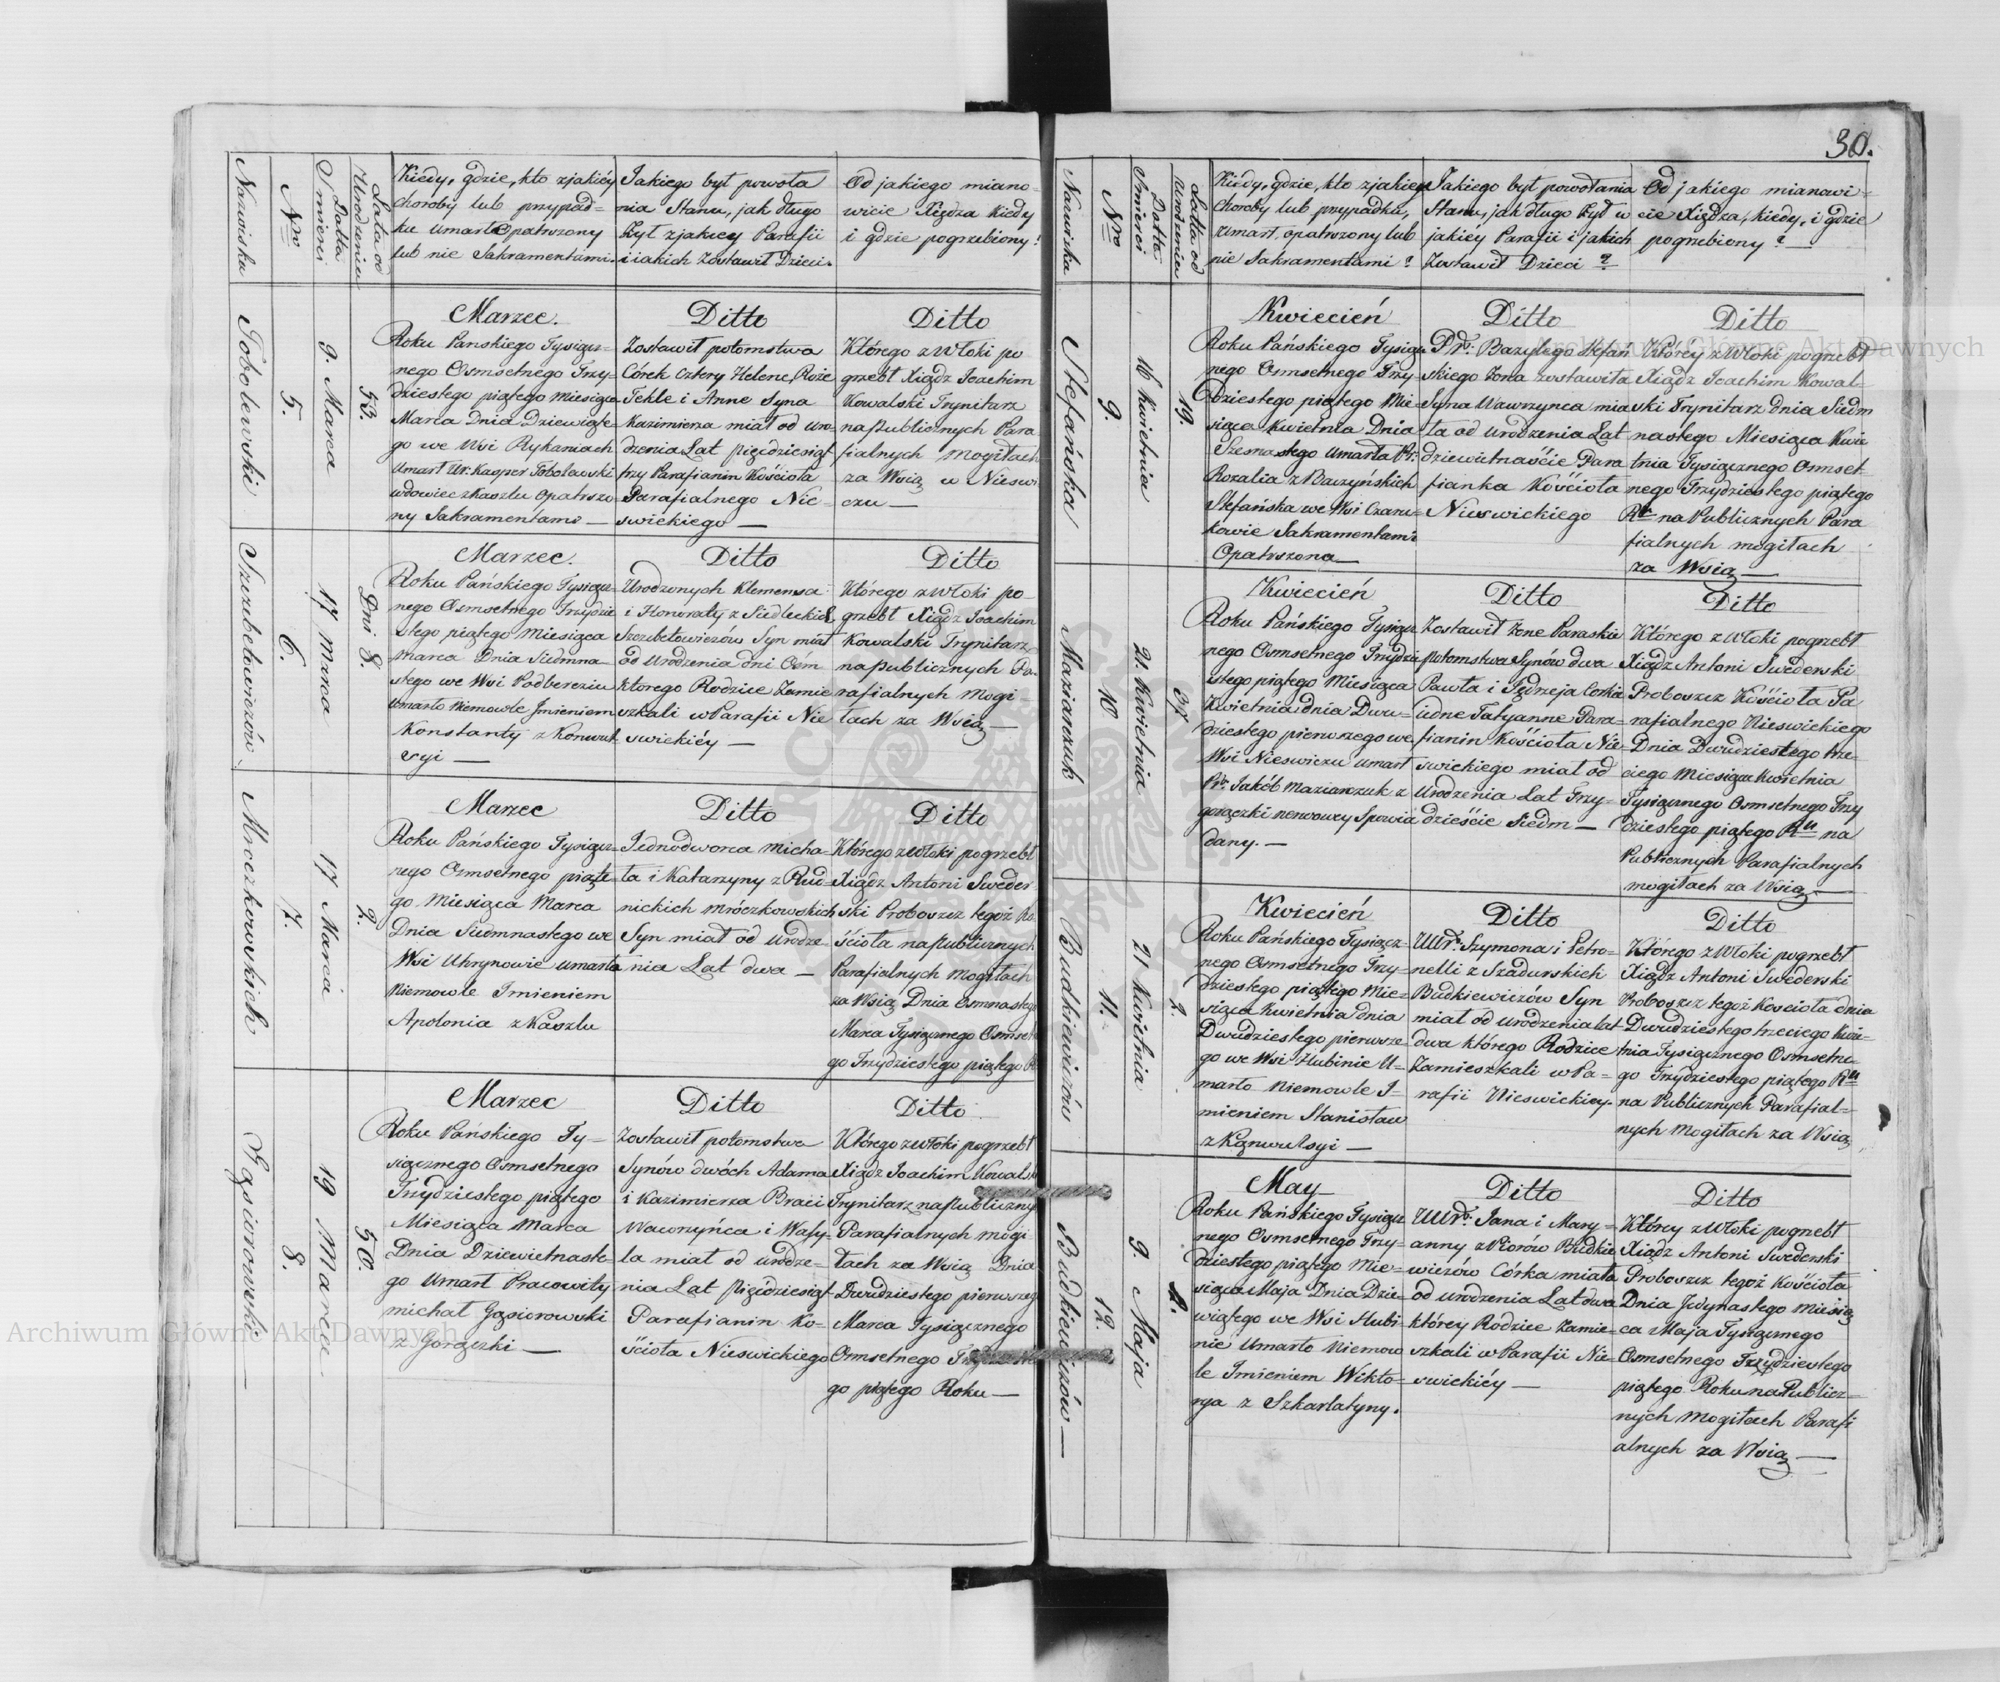 Nazwiska
Nro
Datta Smierci
Latta od Urodzenia
Kiedy, gdzie, kto zjakiéy
choroby lub przypad=
ku umarł Opatrzony
lub nie Sakramentami.
Jakiego był powoła
nia Stanu, jak długo
żył zjakiey Parafii
i iakich Zostawił Dzieci.
Od jakiego miano=
wicie Xiędza kiedy
i gdzie pogrzebiony?
Tobolewski
5.
9. Marca
53.
Marzec.
Roku Panskiego Tysiącz=
nego Osmsetnego Trzy=
dziestego piątego Miesiąca
Marca Dnia Dziewiąte=
go we Wsi Rykaniach
Umarł Ur. Kasper Tobolewski
wdowiec z kaszlu Opatrzo=
ny Sakramentami —
Ditto
Zostawił potomstwa
Córek cztery Helene, Roże
Tekle i Anne Syna
Kazimierza miał od uro=
dzenia Lat pięćdziesiąt
trzy Parafianin Kościoła
Parafialnego Nie=
swickiego —
Ditto
Którego zwłoki po
grzebł Xiądz Joachim
Kowalski Trynitarz
na publicznych Para
fialnych Mogiłach
za Wsią w Nieswi
czu —
Szczubełowiczów
6.
17 Marca
Dni 8.
Marzec.
Roku Pańskiego Tysiącz=
nego Osmsetnego Trzydzie
stego piątego Miesiąca
Marca Dnia Siedmna=
stego we Wsi Podbereziu
umarło Niemowle Imieniem
Konstanty z Konwul
syi —
Ditto
Urodzonych Klemensa
i Honoraty z Siedleckich
Szczubełowiczów Syn miał
od Urodzenia dni Ośm
ktorego Rodzice Zamie
szkali w Parafii Nie
swickiéy —
Ditto
Którego zwłoki po=
grzebł Xiądz Joachim
Kowalski Trynitarz
na publicznych Pa=
rafialnych Mogi=
łach za Wsią —
Mroczkowskich
7.
17 Marca
2.
Marzec
Roku Pańskiego Tysiącz=
nego Osmsetnego piąte=
go Miesiąca Marca
Dnia Siedmnastego we
Wsi Uhrynowie umarła
Niemowle Imieniem
Apolonia z Kaszlu
Ditto
Jednodworca Micha=
ła i Katarzyny z Rud=
nickich Mróczkowskich
Syn miał od urodze=
nia Lat dwa —
Ditto
Którego zwłoki pogrzebł
Xiądz Antoni Sweder=
ski Proboszcz tegoż Ko
ścioła na publicznych
Parafialnych Mogiłach
za Wsią Dnia Osmnastego
Marca Tysiącznego Osmset
go Trzydziestego piątego R
Gąsiorowski —
8.
19 Marca
50.
Marzec
Roku Pańskiego Ty=
siącznego Osmsetnego
Trzydziestego piątego
Miesiąca Marca
Dnia Dziewietnaste=
go Umarł Pracowity
Michał Gąsiorowski
z Gorączki —
Ditto
Zostawił potomstwa
Synów dwóch Adama
i Kazimierza Braci
Wawrzyńca i Wasy=
la miał od urodze=
nia Lat Pięćdziesiąt
Parafianin Ko=
ścioła Nieswickiego
Ditto
Którego zwłoki pogrzebł
Xiądz Joachim Kowals
Trynitarz na publiczny
Parafialnych mogi
łach za Wsią Dnia
Dwudziestego pierwszeg
Marca Tysiącznego
Osmsetnego
go piątego Roku —
30.
Nazwiska
Nro
Datta Smierci
Latta od Urodzenia
Kiedy, gdzie, kto zjakiey
Choroby lub przypadku,
zmarł, opatrzony lub
nie Sakramentami?
Jakiego był powołania
Stanu, jak długo żył w
jakiéy Parafii i jakich
Zostawił Dzieci?
Od jakiego mianowi=
cie Xiędza, kiedy, i gdzie
pogrzebiony? —
Stefańska
9.
16 Kwietnia
19.
Kwiecień
Roku Pańskiego Tysiącz
nego Osmsetnego Trzy=
dziestego piątego Mie=
siąca Kwietnia Dnia
Szesnastego umarła Pr:
Rozalia z Baczyńskich
Stefańska we Wsi Czaru=
kowie Sakramentami
Opatrzona —
Ditto
Pr: Bazylego Stefań
skiego Zona zostawiła
Syna Wawrzynca mia
ła od urodzenia Lat
dziewietnaście Para
fianka Kościoła
Nieswickiego
Ditto
Którey zwłoki pogrzebł
Xiądz Joachim Kowal=
ski Trynitarz dnia Siedm
nastego Miesiąca Kwie
tnia Tysiącznego Osmset=
nego Trzydziestego piątego
Ru na Publicznych Para
fialnych mogiłach
za Wsią —
Mazianczuk
10
21. Kwietnia
37
Kwiecień
Roku Pańskiego Tysiącz
nego Osmsetnego Trzydzie
stego piątego Miesiąca
Kwietnia dnia Dwu=
dziestego pierwszego we
Wsi Nieswiczu umarł
Pr. Jakób Mazianczuk z
gorączki nerwowey Spowia
dany. —
Ditto
Zostawił Zone Paraskie
potomstwa Synów dwa
Pawła i Jędrzeja Corke
iedne Tatyanne Para=
fianin Kościoła Nie=
swickiego miał od
Urodzenia Lat Trzy=
dzieście Siedm —
Ditto
Którego zwłoki pogrzebł
Xiądz Antoni Swederski
Proboszcz Kościoła Pa
rafialnego Nieswickiego
Dnia Dwudziestego trze=
ciego Miesiąca Kwietnia
Tysiącznego Osmsetnego Trzy
dziestego piątego Ru na
Publicznych Parafialnych
mogiłach za Wsią —
Budkiewiczów
11.
21 Kwietnia
2.
Kwiecień
Roku Pańskiego Tysiącz=
nego Osmsetnego Trzy=
dziestego piątego Mie=
siąca Kwietnia dnia
Dwudziestego pierwsze=
go we Wsi Hubinie U=
marło Niemowle I=
mieniem Stanisław
z Konwulsyi —
Ditto
Ur: Szymona i Petro=
nelli z Szadurskich
Budkiewiczów Syn
miał od urodzenia lat
dwa którego Rodzice
Zamieszkali w Pa=
rafii Nieswickiey.
Ditto
Którego zwłoki pogrzebł
Xiądz Antoni Swederski
Proboszcz tegoż Kościoła dnia
Dwudziestego trzeciego Kwie=
tnia Tysiącznego Osmsetne=
go Trzydziestego piątego Ru
na Publicznych Parafial=
nych Mogiłach za Wsią
Budkiewiczów —
12.
9 Maja
2.
May
Roku Pańskiego Tysiącz
nego Osmsetnego Trzy=
dziestego piątego Mie=
siąca Maja Dnia Dzie=
wiątego we Wsi Hubi=
nie Umarło Niemow
le Imieniem Wikto=
rya z Szkarlatyny.
Ditto
Ur: Jana i Mary=
anny z Piorów Budkie
wiczów Córka miała
od urodzenia Lat dwa
którey Rodzice Zamie=
szkali w Parafii Nie=
swickiéy —
Ditto
Którey zwłoki pogrzebł
Xiądz Antoni Swederski
Proboszcz tegoż Kościoła
Dnia Jedynastego Miesią
ca Maja Tysiącznego
Osmsetnego Trzydziestego
piątego Roku na Publicz=
nych Mogiłach Parafi
alnych za Wsią —
Archiwum Główne Akt Dawnych
Archiwum Główne Akt Dawnych